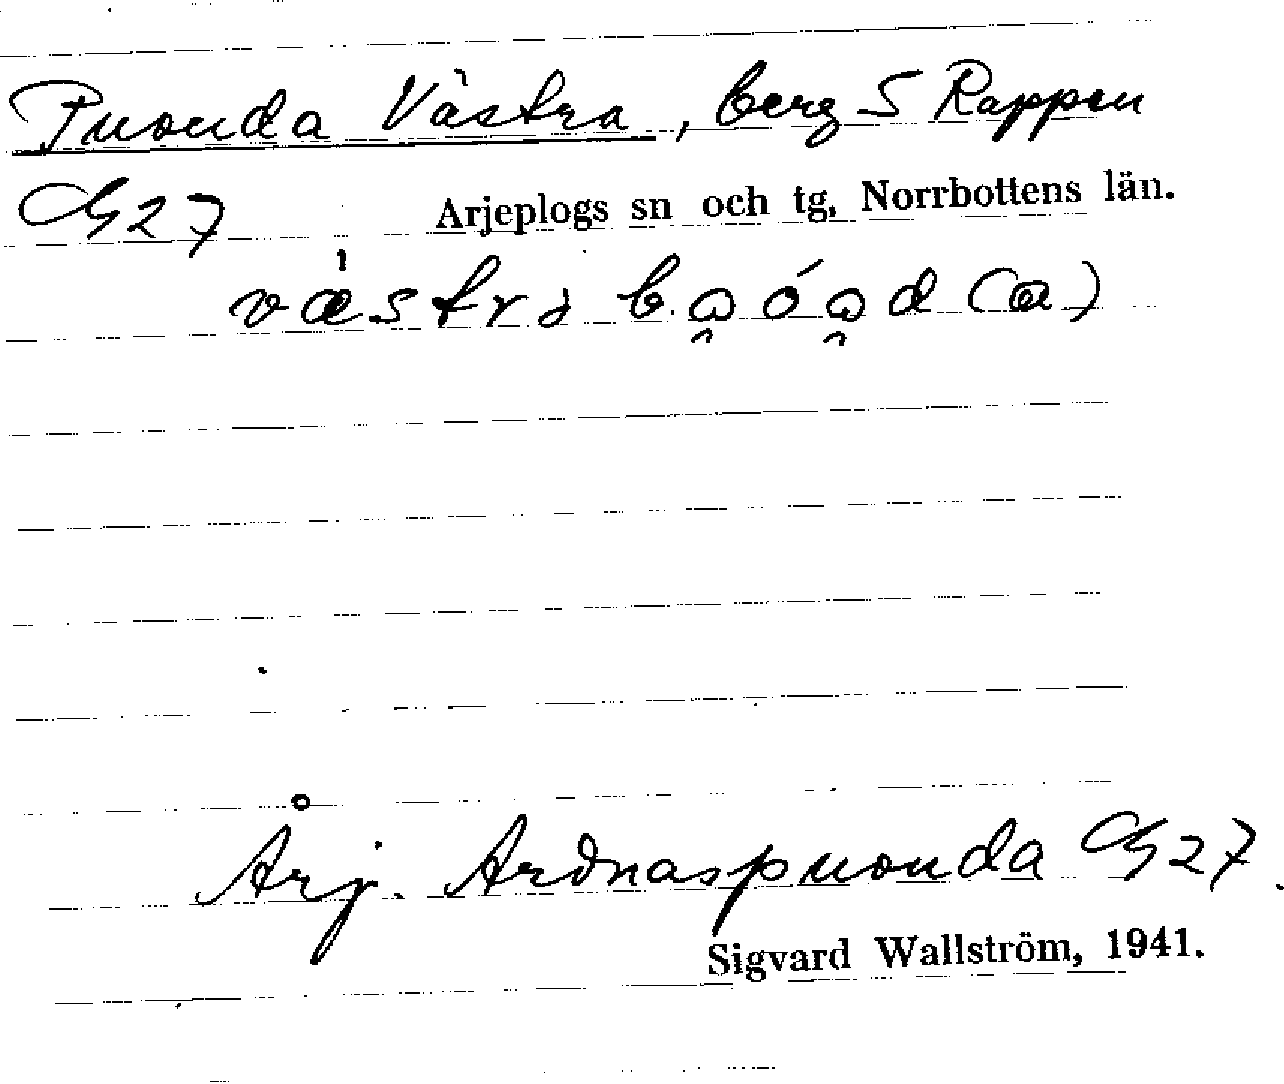 Puonda Västra, berg S Rappen
G27 Arjeplogs sn och tg, Norrbottens län.
Årj. Ardnaspuonda G27.
Sigvard Wallström, 1941.